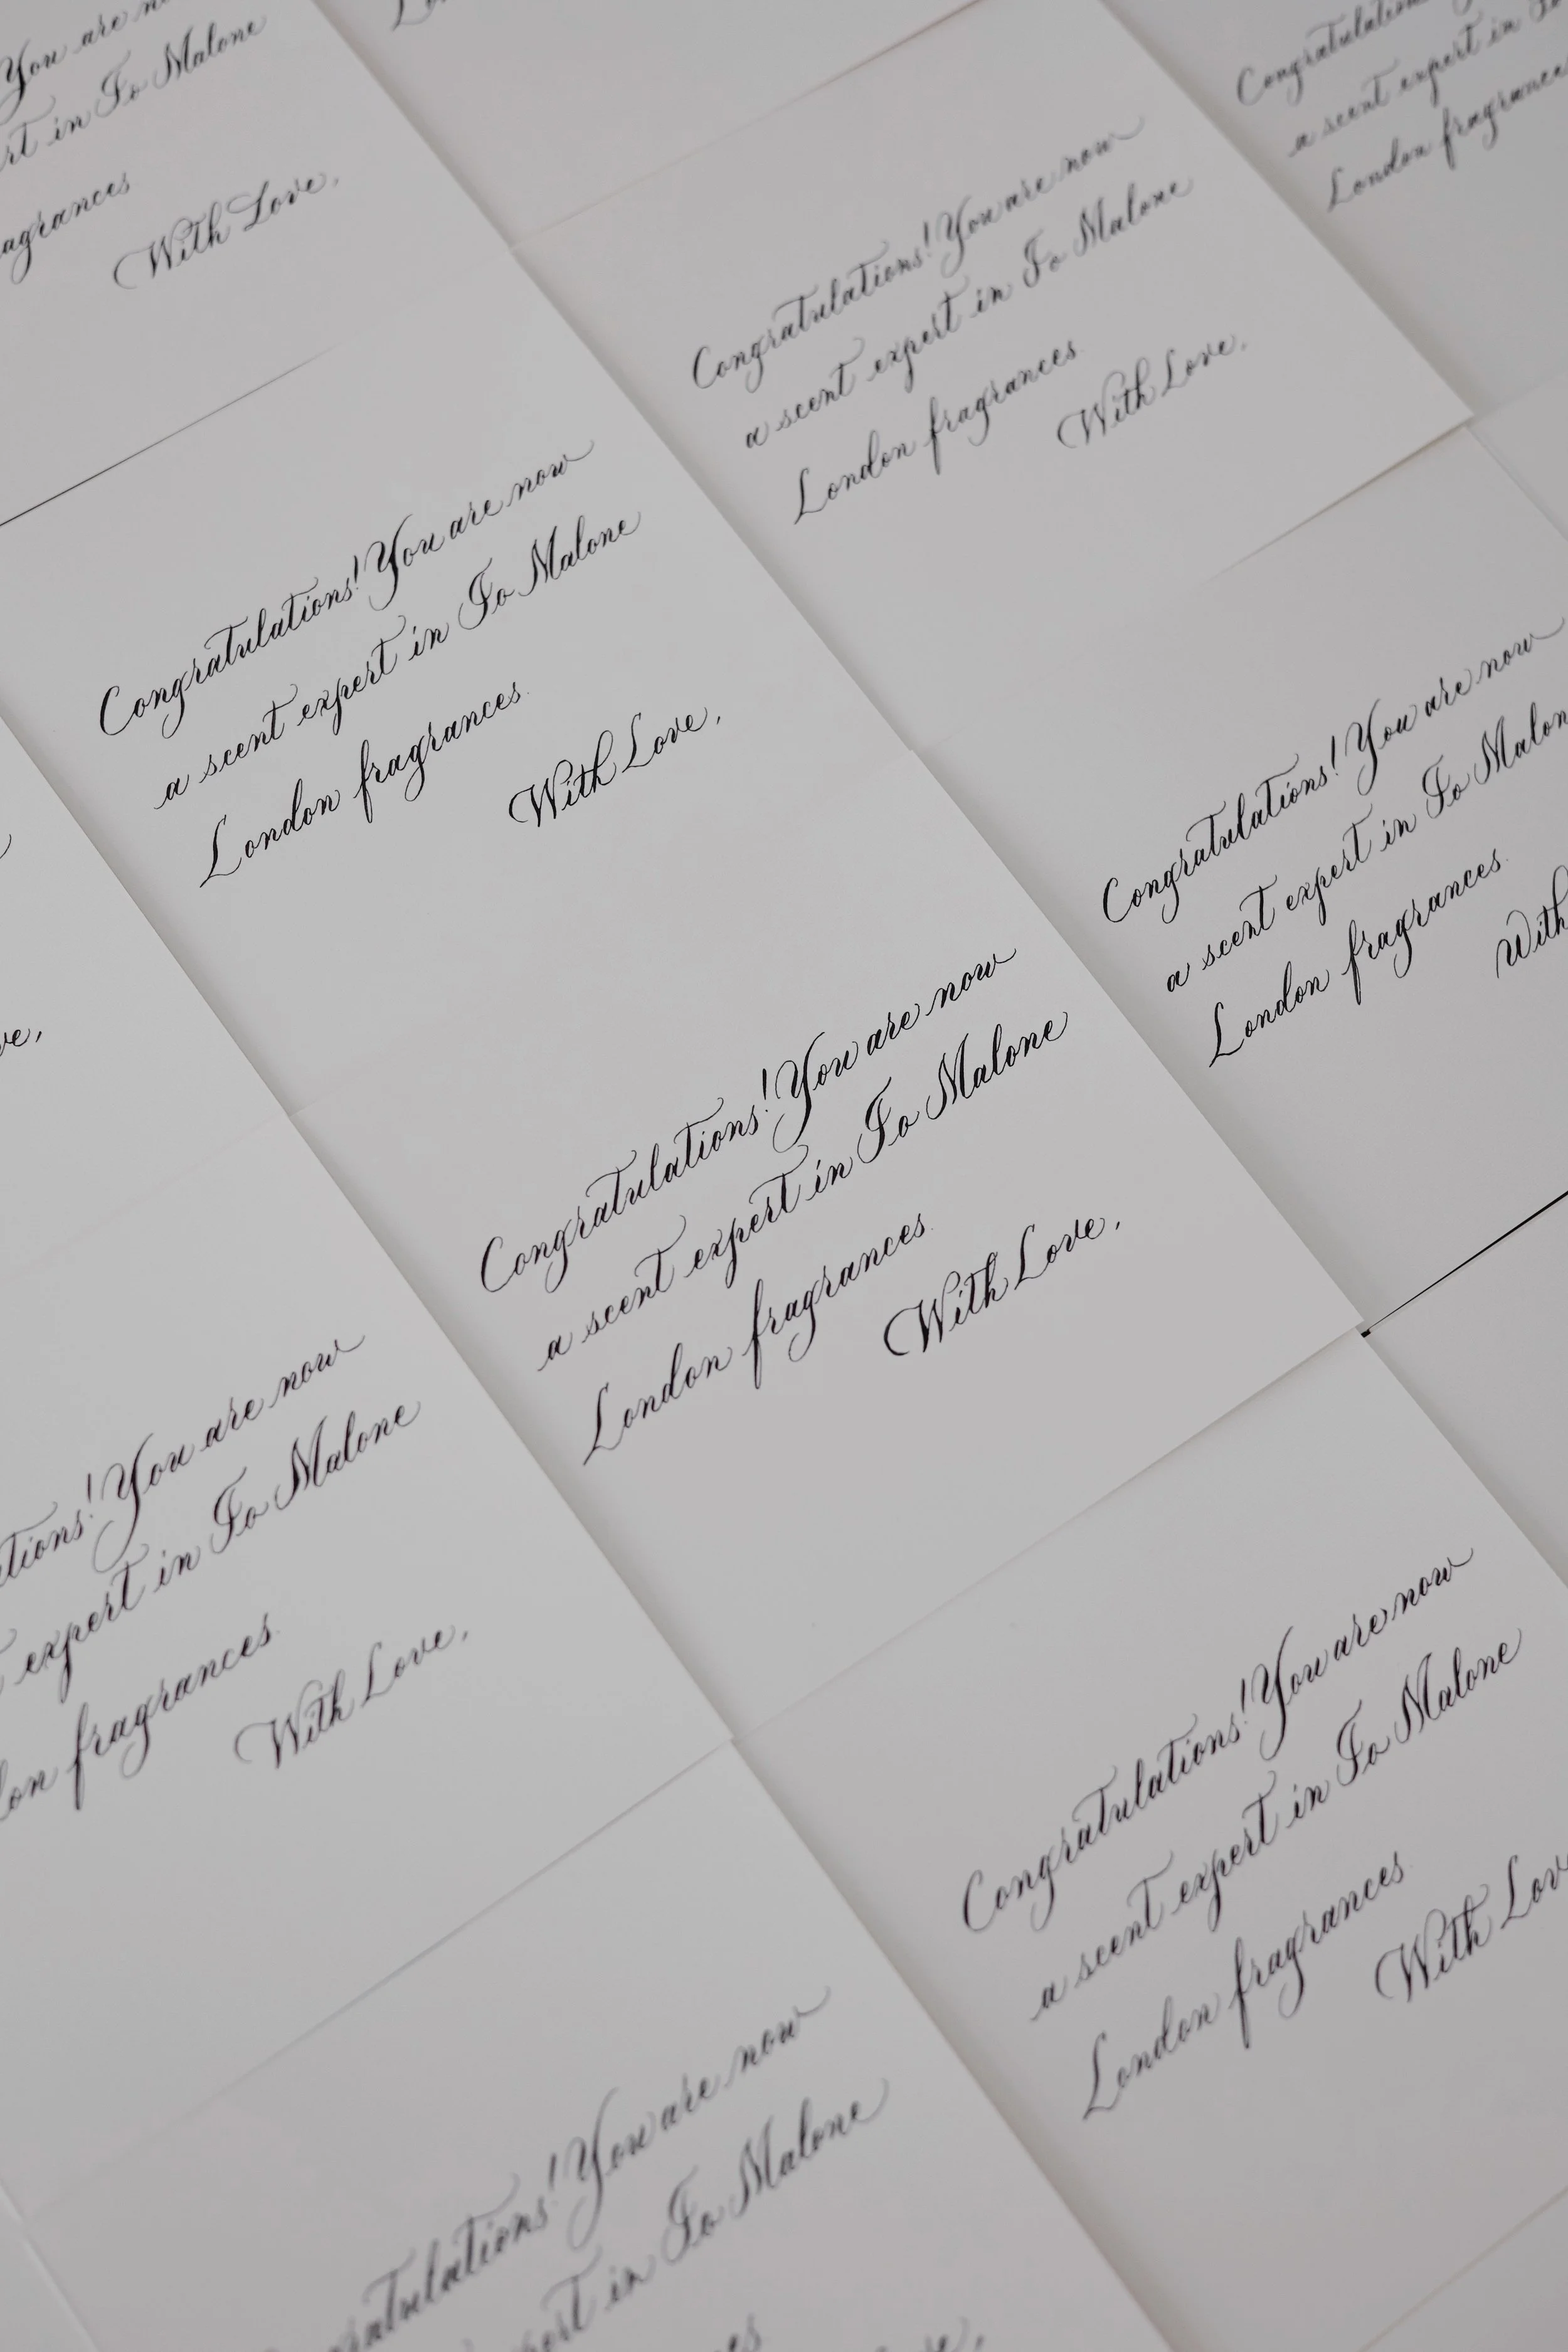 You are
rt in Jo Malone
agrances
With Love,
Congratulations! You are now
a scent expert in Jo Malone
London fragrances.
With Love,
Congratulations
a scent expert in Jo
London fragrances
Congratulations! You are now
a scent expert in Jo Malone
London fragrances.
With Love,
Congratulations! You are now
a scent expert in Jo Malon
London fragrances.
With
ve,
Congratulations! You are now
a scent expert in Jo Malone
London fragrances.
With Love,
tions! You are now
expert in Jo Malone
on fragrances.
With Love,
Congratulations! You are now
a scent expert in Jo Malone
London fragrances.
With Lov
ngratulations! You are now
ert in Jo Malone
es
e,